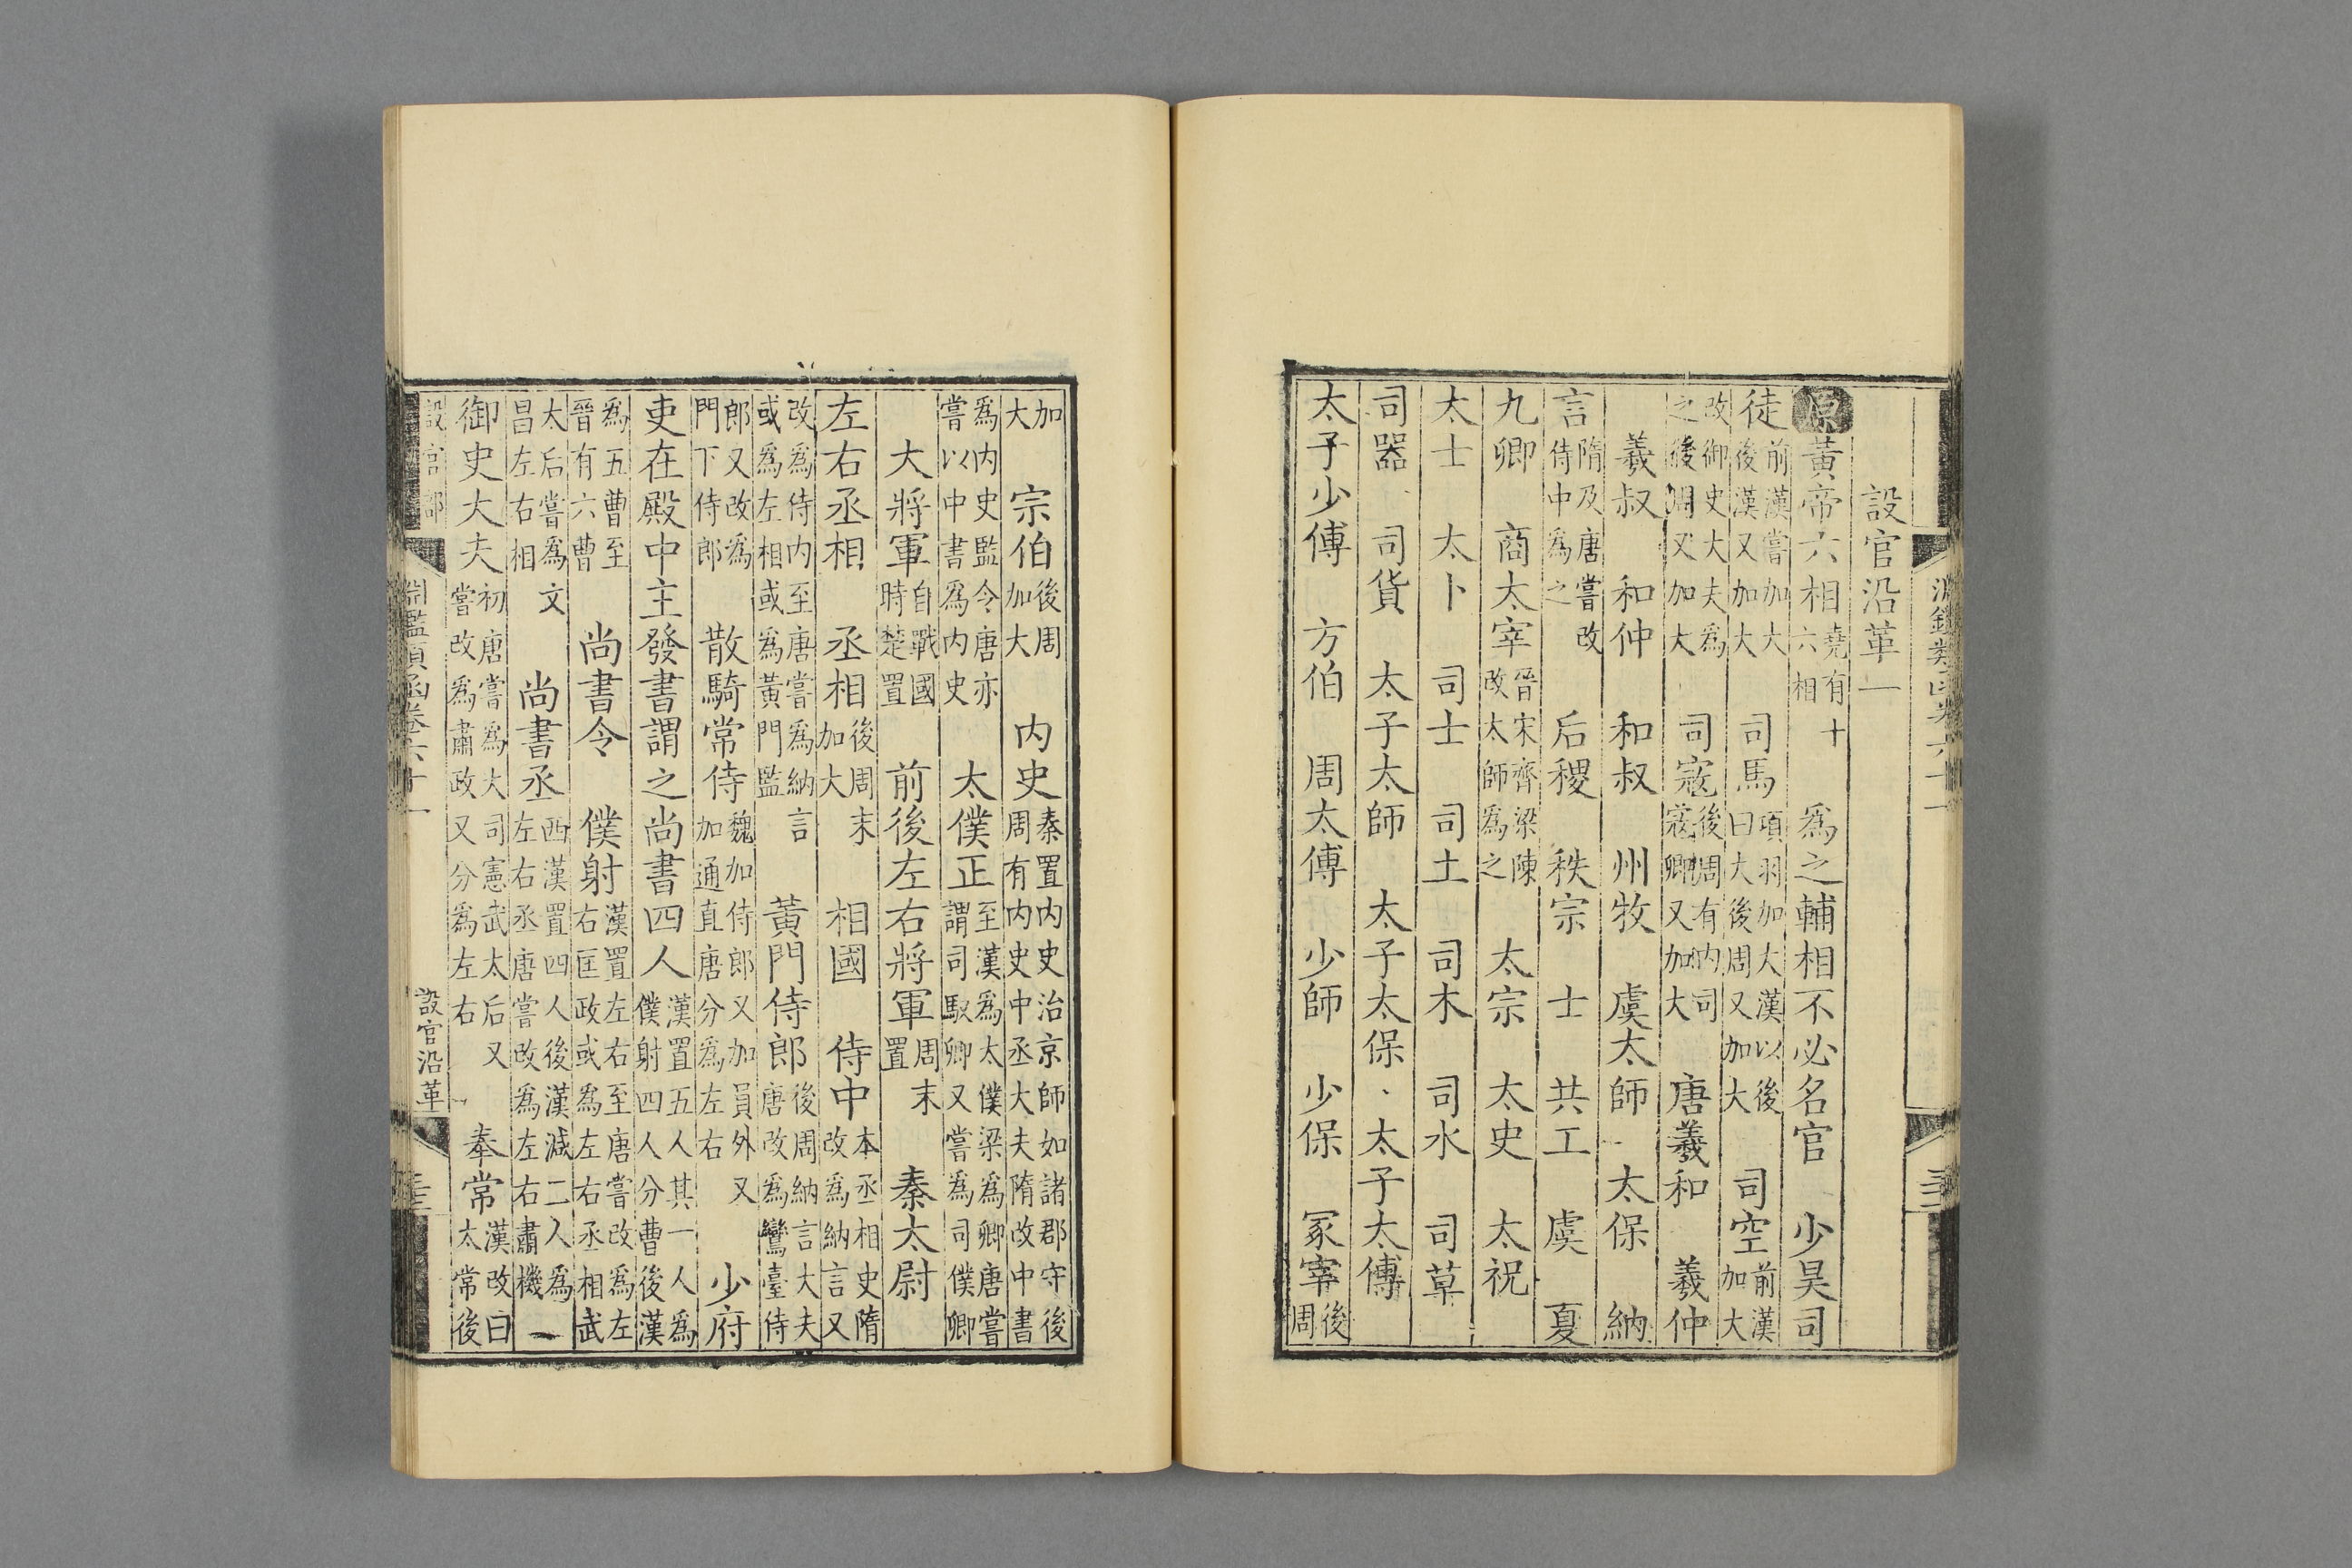 淵鑑類函卷六十一 三
設官沿革一
原黃帝六相堯有十六相 爲之輔相不必名官 少昊司
徒前漢嘗加大後漢又加大 司馬項羽加大漢以後曰大後周又加大 司空前漢加大
改御史大夫爲之後周又加大 司寇後周有內司寇卿又加大 唐羲和 羲仲
羲叔 和仲 和叔 州牧 虞太師 太保 納
言隋及唐嘗改侍中爲之 后稷 秩宗 士 共工 虞 夏
九卿 商太宰晉宋齊梁陳改太師爲之 太宗 太史 太祝
太士 太卜 司士 司土 司木 司水 司草
司器 司貨 太子太師 太子太保 太子太傅
太子少傅 方伯 周太傅 少師 少保 冢宰後周
加大 宗伯後周加大 内史秦置内史治京師如諸郡守後周有内史中丞大夫隋改中書
爲内史監令唐亦嘗以中書爲内史 太僕正至漢爲太僕梁爲卿唐嘗謂司馭卿又嘗爲司僕卿
大將軍自戰國時楚置 前後左右將軍周末置 秦太尉
左右丞相 丞相後周末加大 相國 侍中本丞相史隋改爲納言又
改爲侍内至唐嘗爲納言或爲左相或爲黃門監 黃門侍郎後周納言大夫唐改爲鸞臺侍
郎又改爲門下侍郎 散騎常侍魏加侍郎又加員外又加通直唐分爲左右 少府
吏在殿中主發書謂之尚書四人漢置五人其一人爲僕射四人分曹後漢
爲五曹至晉有六曹 尚書令 僕射漢置左右至唐嘗改爲左右匡政或爲左右丞相武
太后嘗爲文昌左右相 尚書丞西漢置四人後漢減二人爲左右丞唐嘗改爲左右肅機一
御史大夫初唐嘗爲大司憲武太后又嘗改爲肅政又分爲左右 奉常漢改曰太常後
設官部 淵鑑類函卷六十一 設官沿革 三